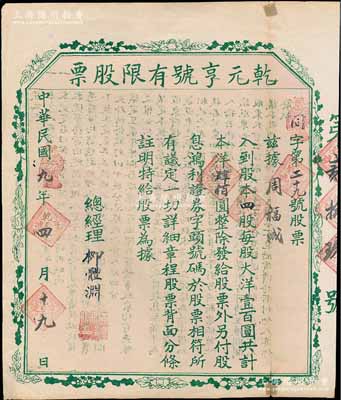 票股限有號亨元乾
同字第二十九號股票
茲據周福成
入到股本四股每股大洋壹百圓共計
本洋肆佰圓整除發給股票外另付股
息鴻利證券字頭號碼於股票相符所
有議定一切詳細章程股票背面分條
註明特給股票為據
總經理柳
中華民國九年四月十九日